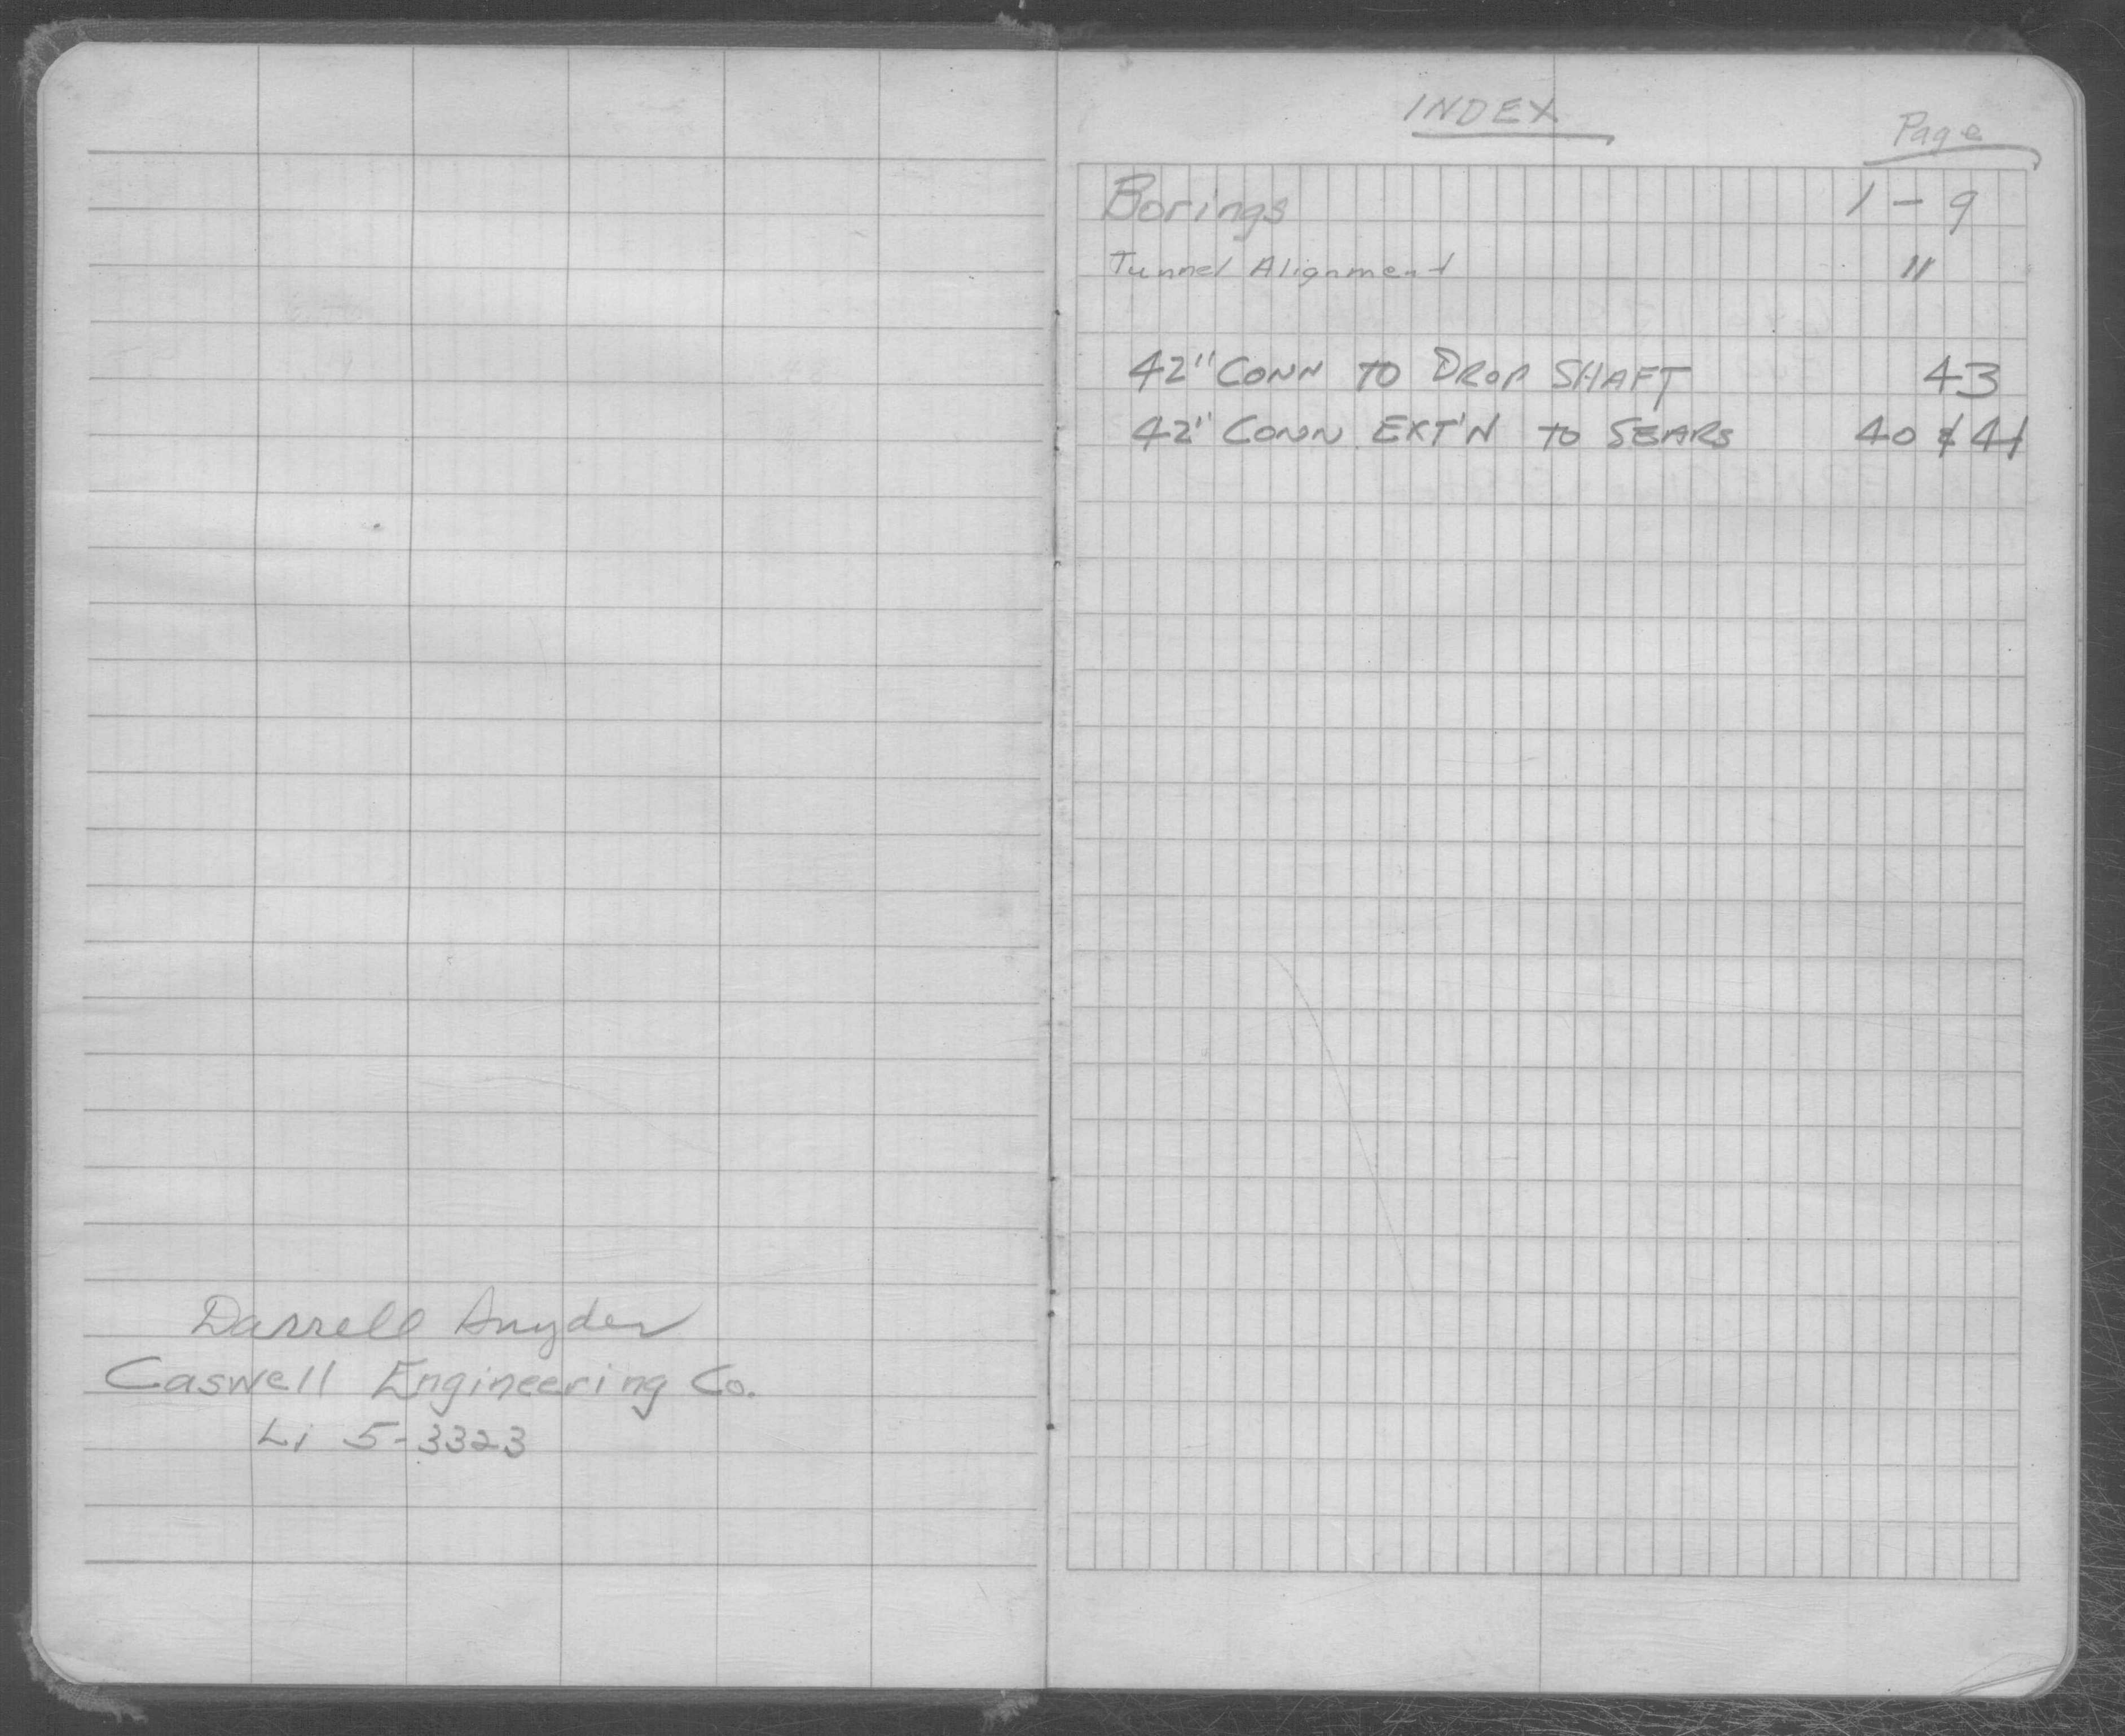 Darrell Snyder
Caswell Engineering Co.
Li 5-3323
INDEX
Page
Borings 1 - 9
Tunnel Alignment 11
42" CONN TO DROP SHAFT 43
42" CONN EXT'N TO SEARS 40 & 41